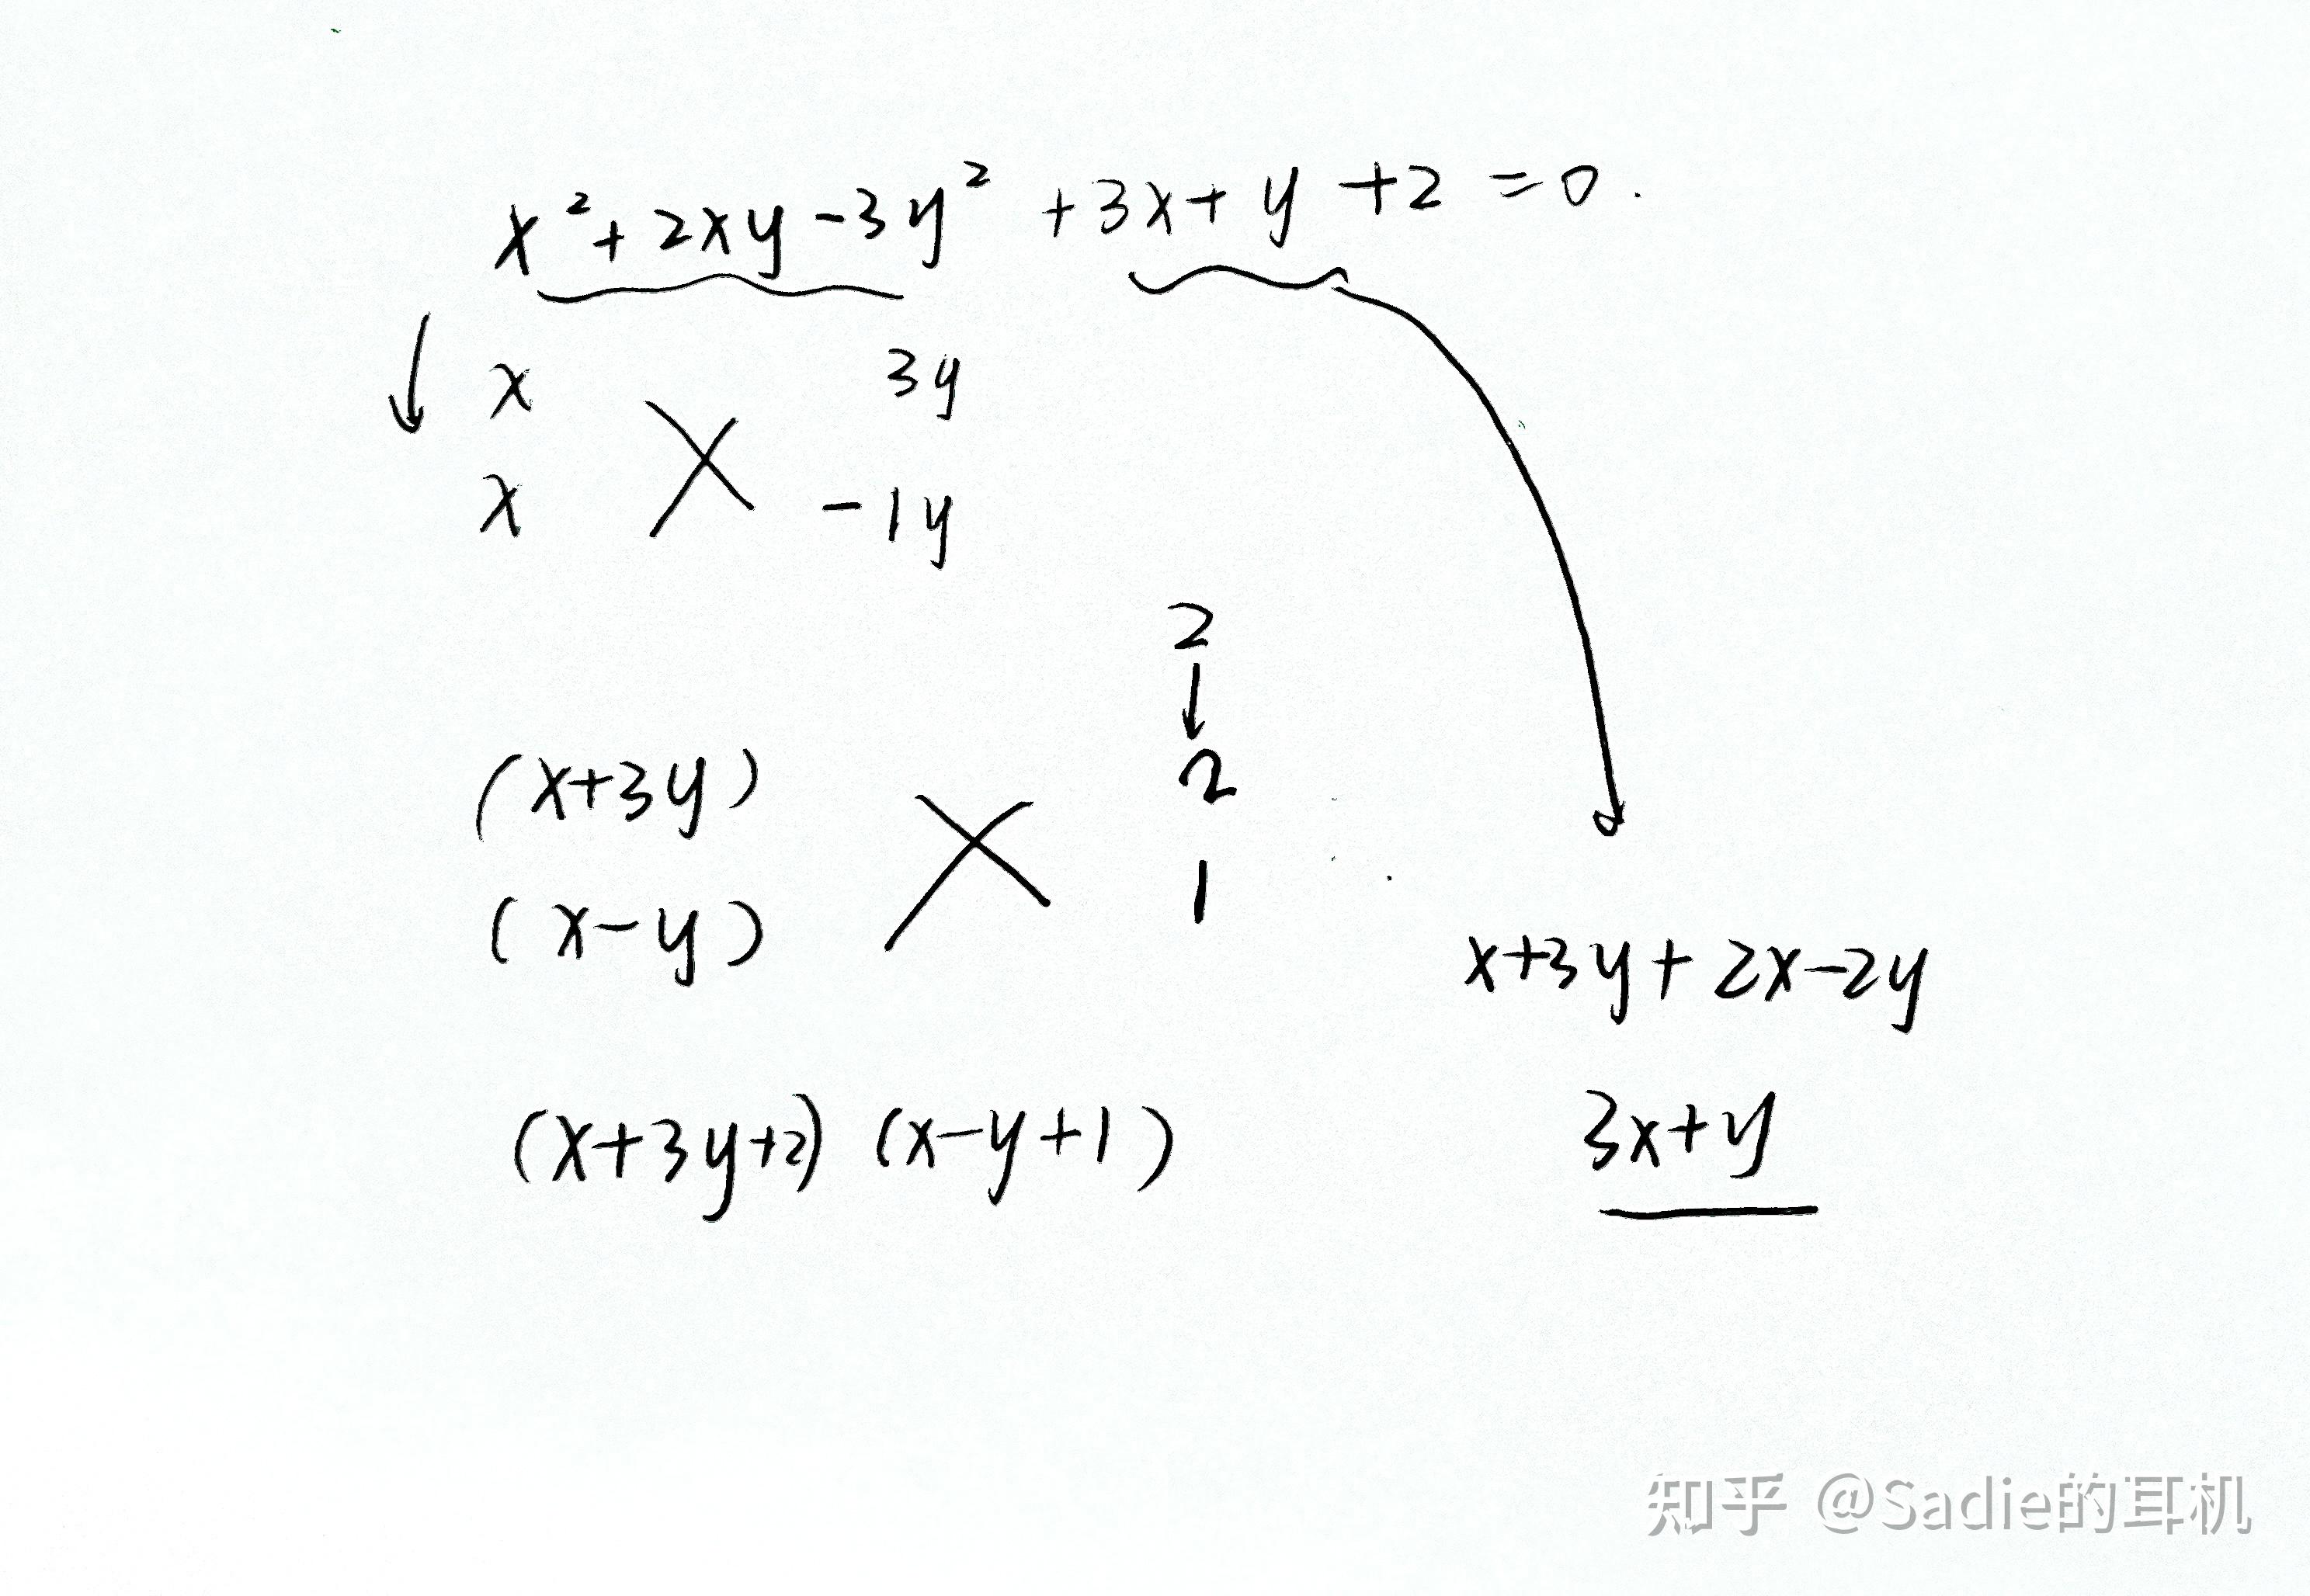 x² + 2xy - 3y² + 3x + y + 2 = 0.
x 3y
x -1y
2
(x+3y) 2
(x-y) 1
x+3y+2x-2y
(x+3y+2) (x-y+1)
3x+y
知乎 @Sadie的耳机